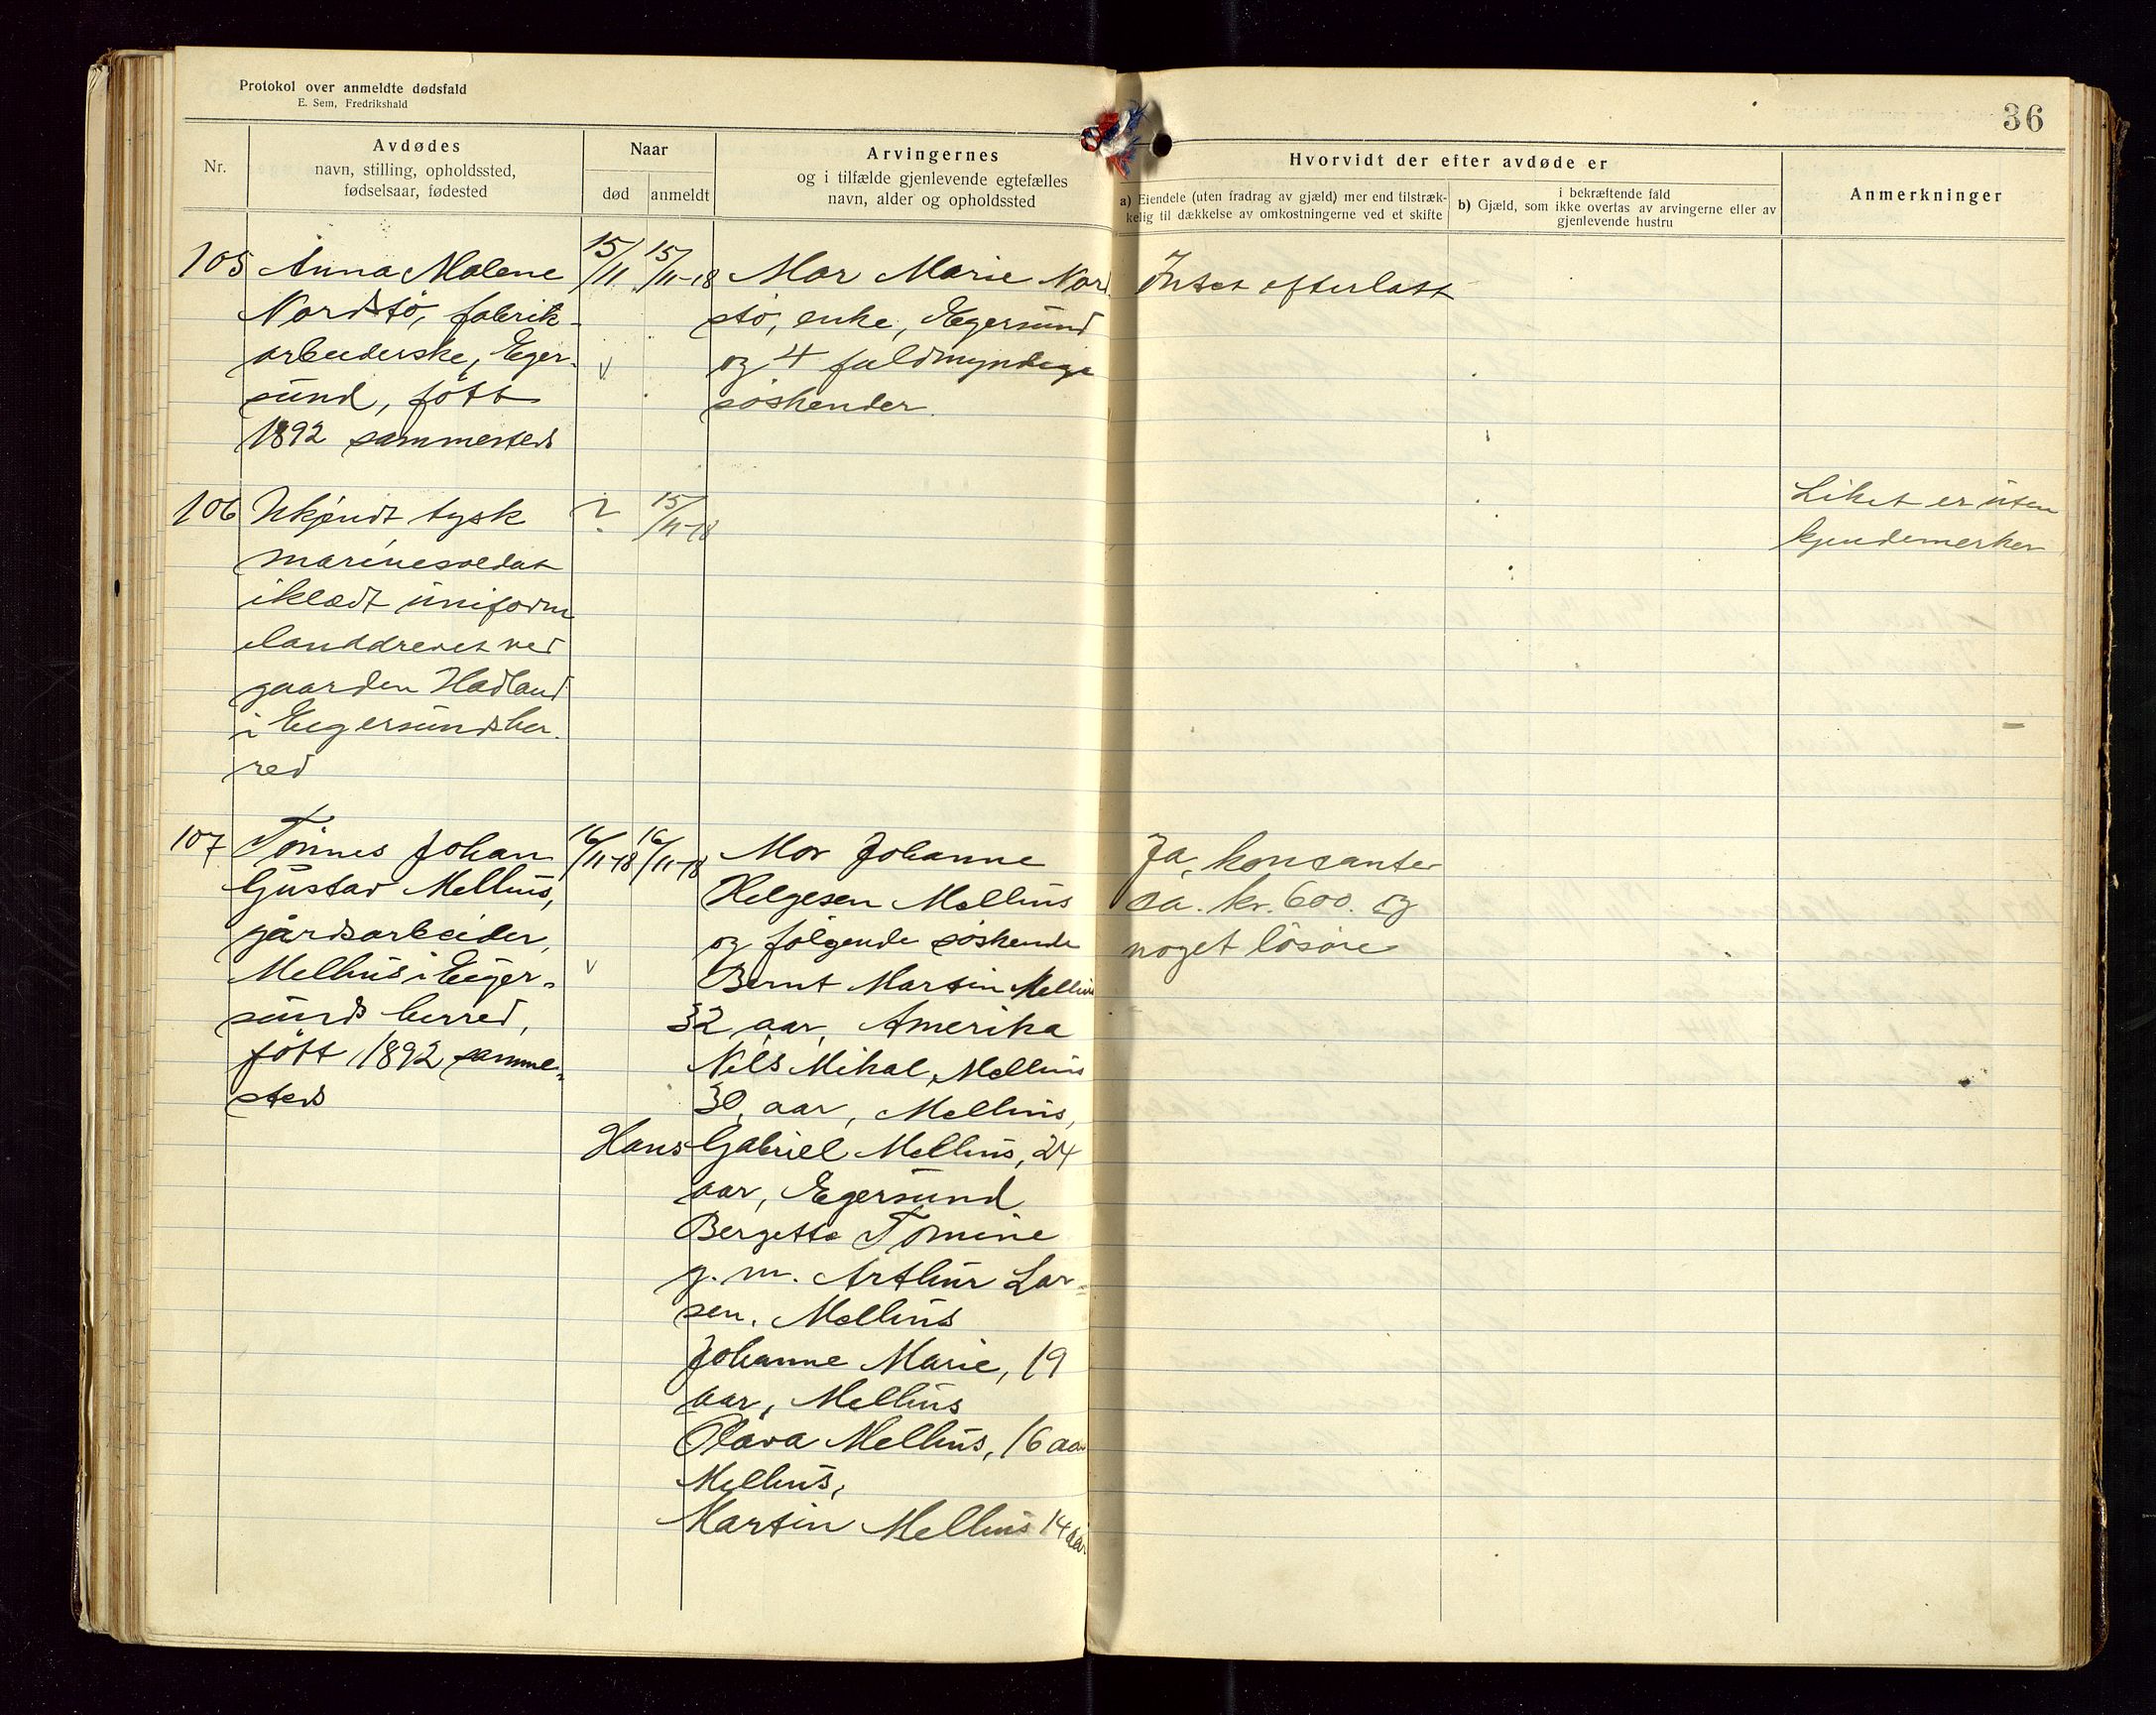 Protokol over anmeldte dødsfald
E. Sem, Fredrikshald
36
Nr.
Avdødes
navn, stilling, opholdssted,
fødselsaar, fødested
Naar
død
anmeldt
Arvingernes
og i tilfælde gjenlevende egtefælles
navn, alder og opholdssted
Hvorvidt der efter avdøde er
a) Eiendele (uten fradrag av gjæld) mer end tilstræk-
kelig til dækkelse av omkostningerne ved et skifte
i bekræftende fald
b) Gjæld, som ikke overtas av arvingerne eller av
gjenlevende hustru
Anmerkninger
105
Anna Malene
Nordstö, fabrik-
arbeiderske, Eger-
sund, fött
1892 sammesteds
15/11
15/11-18
Mor Marie Nord
stö, enke, Egersund
og 4 fuldmyndige
söskender.
Intet efterlatt
106
Ukjendt tysk
marinesoldat
iklædt uniform
ilanddrevet ved
gaarden Hadland
i Eigersundsher-
red
?
15/11-18
Liket er uten
kjendemerker
107
Tönnes Johan
Gustav Mellius,
gårdsarbeider,
Melhus i Eiger-
sunds herred,
fött 1892 samme-
steds
16/11-18
16/11-18
Mor Johanne
Helgesen Melhus
og følgende söskende
Bernt Martin Melhus
32 aar, Amerika
Nils Mikal Melhus
30 aar, Melhus,
Hans Gabriel Melhus, 24
aar, Egersund
Bergette Tomine
g. m. Arthur Lar-
sen, Melhus
Johanne Marie, 19
aar, Melhus
Olava Melhus, 16 aar
Melhus,
Martin Melhus 14 aar
Ja, konsanter
ca. kr. 600. og
noget lösöre